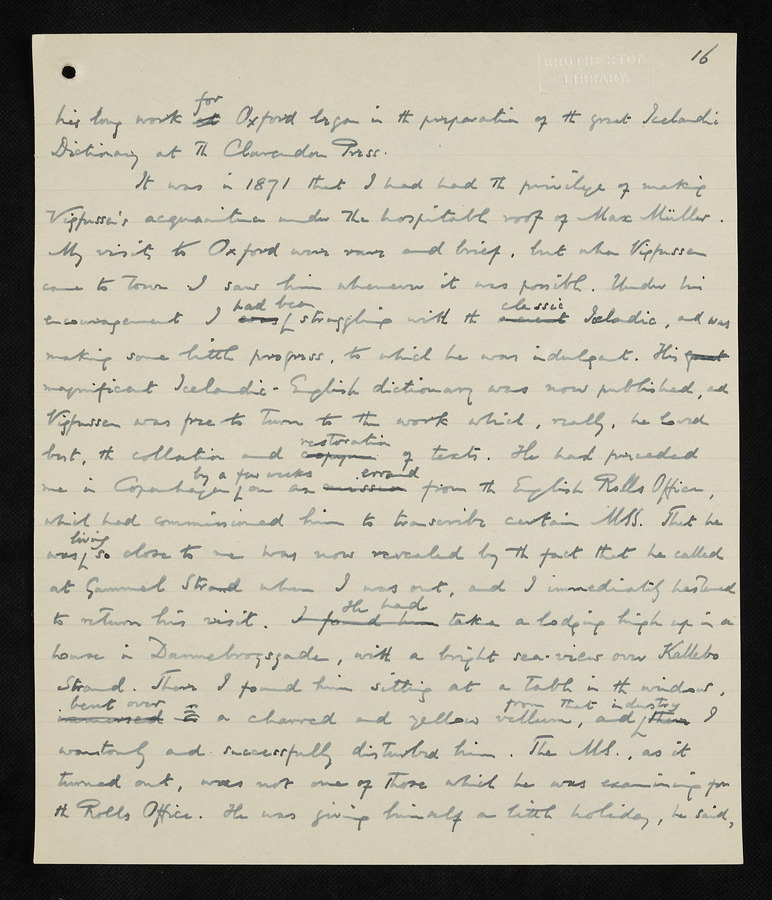 16
BROTHERTON
LIBRARY.
for
his long work at Oxford began in th preparation of th great Icelandic
Dictionary at Th Clarendon Press.
It was in 1871 that I had had th privilege of making
Vigfussen's acquaintance under The hospitable roof of Max Müller.
My visits to Oxford were rare and brief, but when Vigfussen
came to Town I saw him whenever it was possible. Under his
had been classic
encouragement I was struggling with th ancient Icelandic, and was
making some little progress, to which he was indulgent. His great
magnificent Icelandic-English dictionary was now published, and
Vigfussen was free to turn to th work which, really, he loved
restoration
best, th collation and copying of texts. He had preceded
by a few weeks errand
me in Copenhagen, on an mission from th English Rolls Office,
which had commissioned him to transcribe certain MSS. That he
living
was so close to me was now revealed by th fact that he called
at Gammel Strand when I was out, and I immediately hastened
He had
to return his visit. I found him taken a lodging high up in a
house in Dannebrogsgade, with a bright sea-view over Kallebo
Strand. There I found him sitting at a table in th window,
bent over from that industry
immersed in a charred and yellow vellum, and there I
wantonly and successfully disturbed him. The MS., as it
turned out, was not one of those which he was examining for
th Rolls Office. He was giving himself a little holiday, he said,